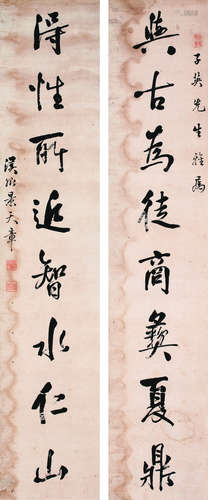 子英先生雅屬
與古為徒商彝夏鼎
得性所近智水仁山
景天章